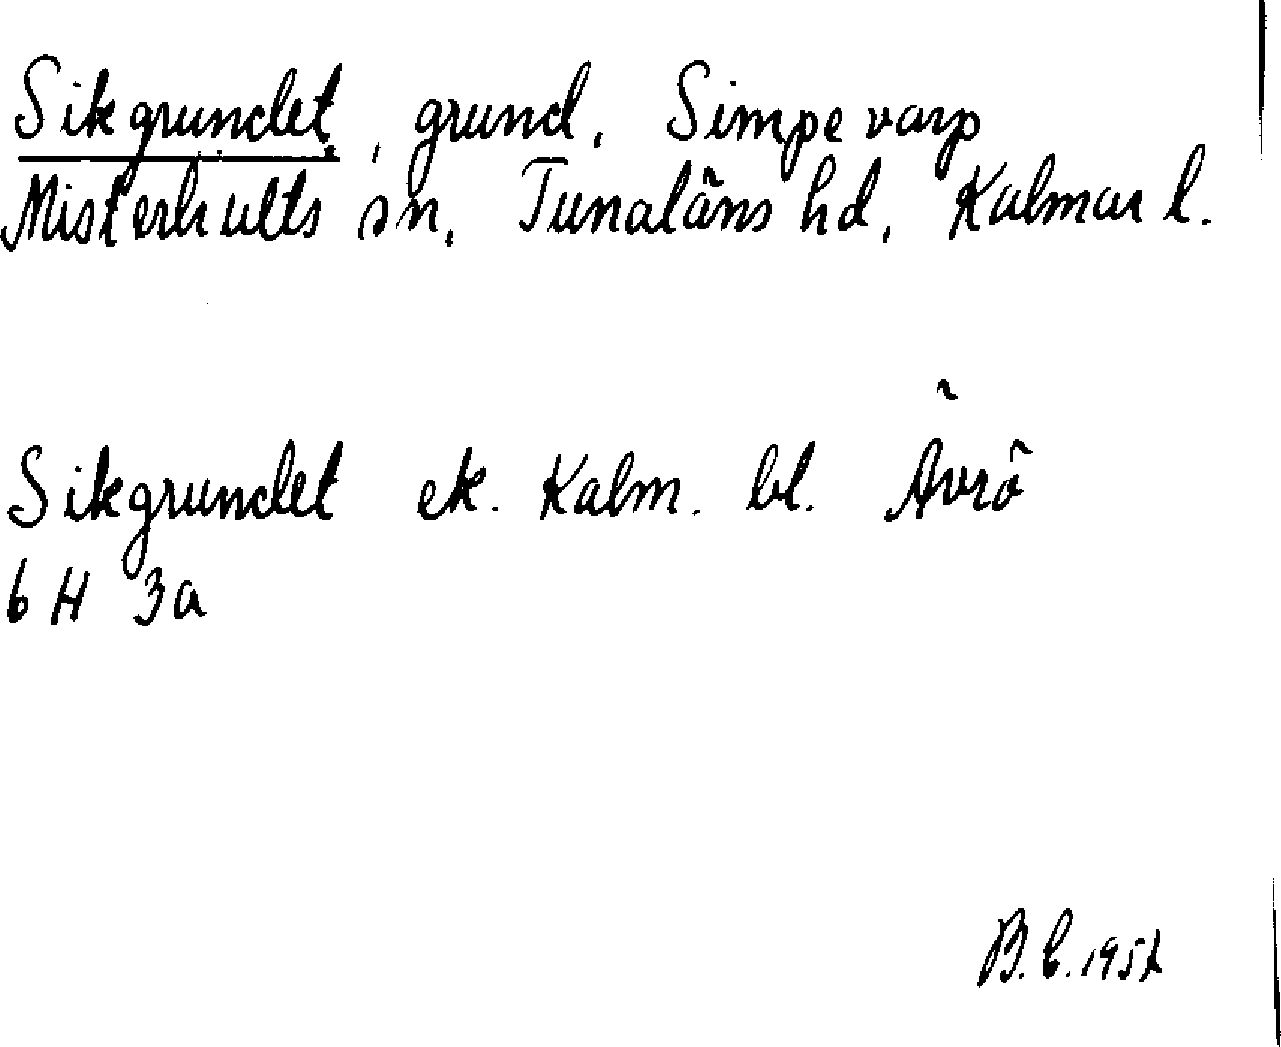 Sikgrundet, grund, Simpevarp
Misterhults sn, Tunaläns hd, Kalmar l.
Sikgrundet ek. Kalm. bl. Ävrö
6 H 3a
B.E. 1957